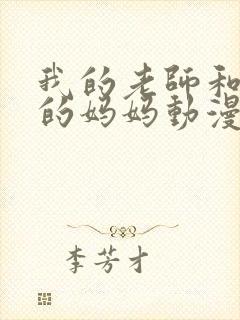 我的老師和
的妈妈動漫
李芳才